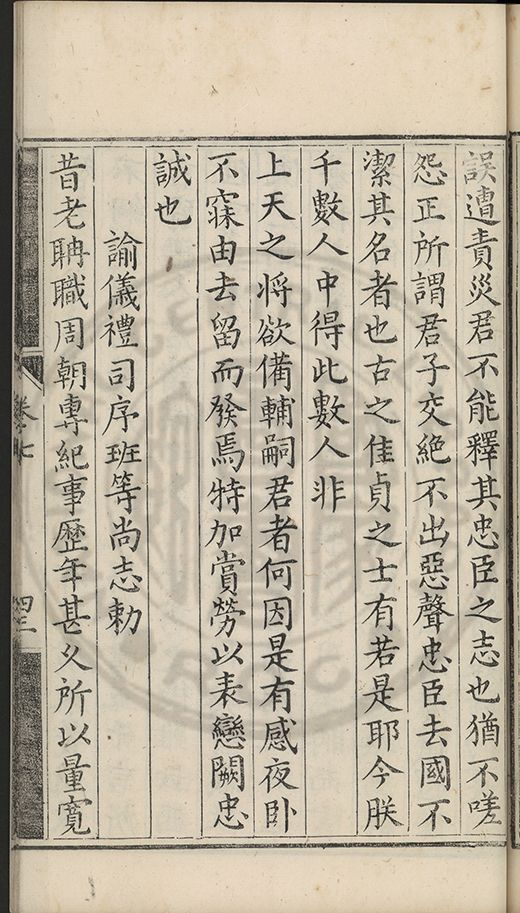 誤遭責災君不能釋其忠臣之志也猶不嗟
怨正所謂君子交絶不出惡聲忠臣去國不
潔其名者也古之佳貞之士有若是耶今朕
千數人中得此數人非
上天之將欲備輔嗣君者何因是有感夜卧
不寐由去留而發焉特加賞勞以表戀闕忠
誠也
諭儀禮司序班等尚志勅
昔老聃職周朝專紀事歷年甚久所以量寬
卷七